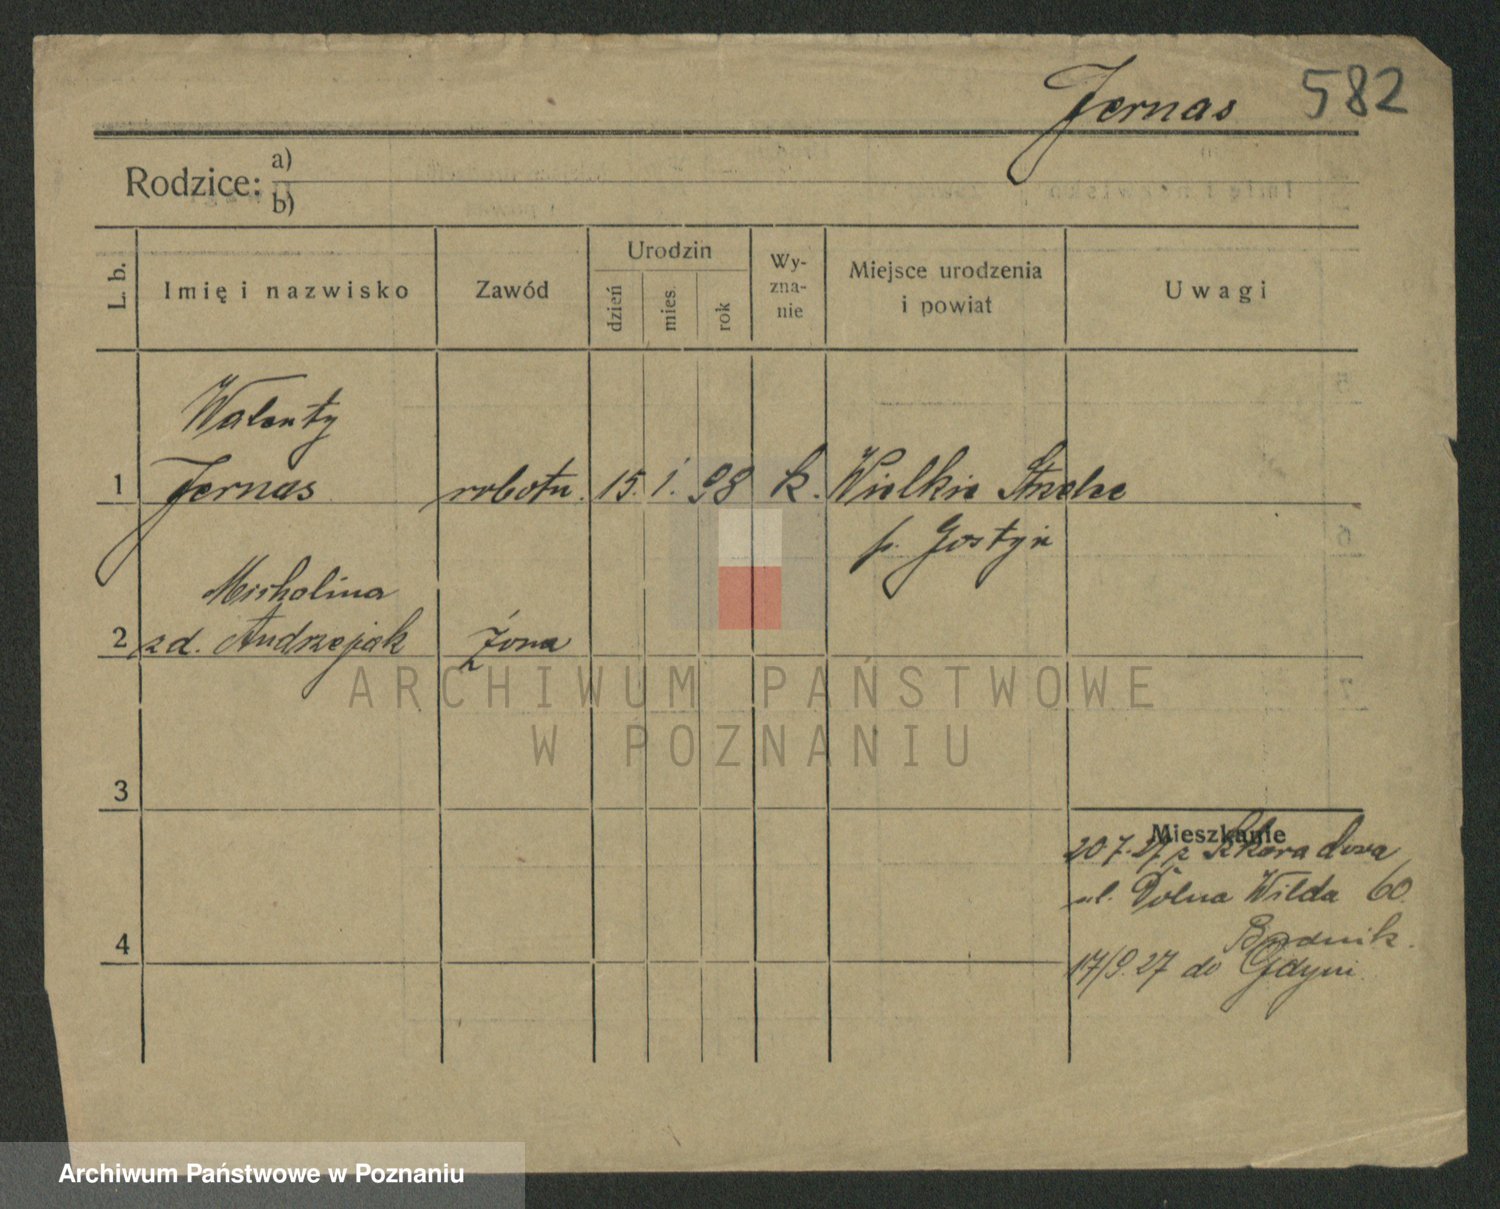 Jernas 582
Rodzice: a)
b)
L. b. Imię i nazwisko Zawód Urodzin dzień mies. rok Wy-zna-nie Miejsce urodzenia i powiat Uwagi
Walenty
1 Jernas robotn. 15. 1. 98 k. Wielkie Strzelce
p. Gostyń
Michalina
2 zd. Andrzejak żona
ARCHIWUM PAŃSTWOWE
W POZNANIU
3
Mieszkanie
20 7. 27 z
ul. Dolna Wilda 60
4
17/9. 27 do Gdyni
Archiwum Państwowe w Poznaniu